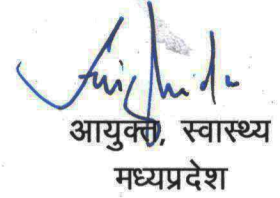 आयुक्त, स्वास्थ्य
मध्यप्रदेश